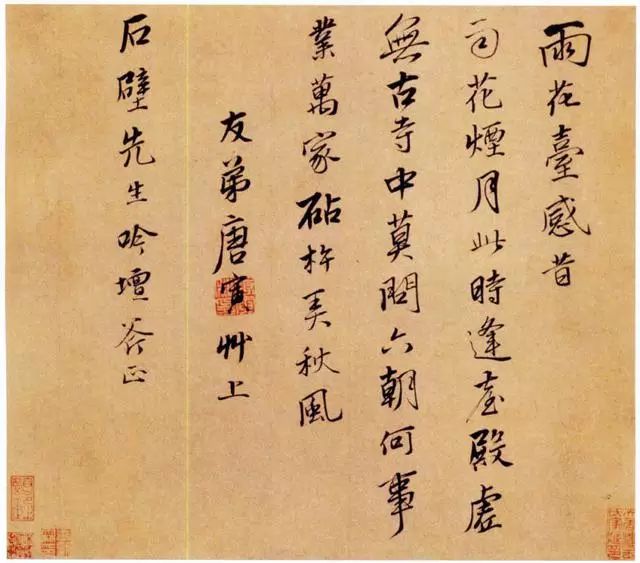 雨花臺感昔
司花煙月此時逢臺殿虛
無古寺中莫問六朝何事
業萬家砧杵美秋風
友弟唐寅艸上
石壁先生吟壇斧正